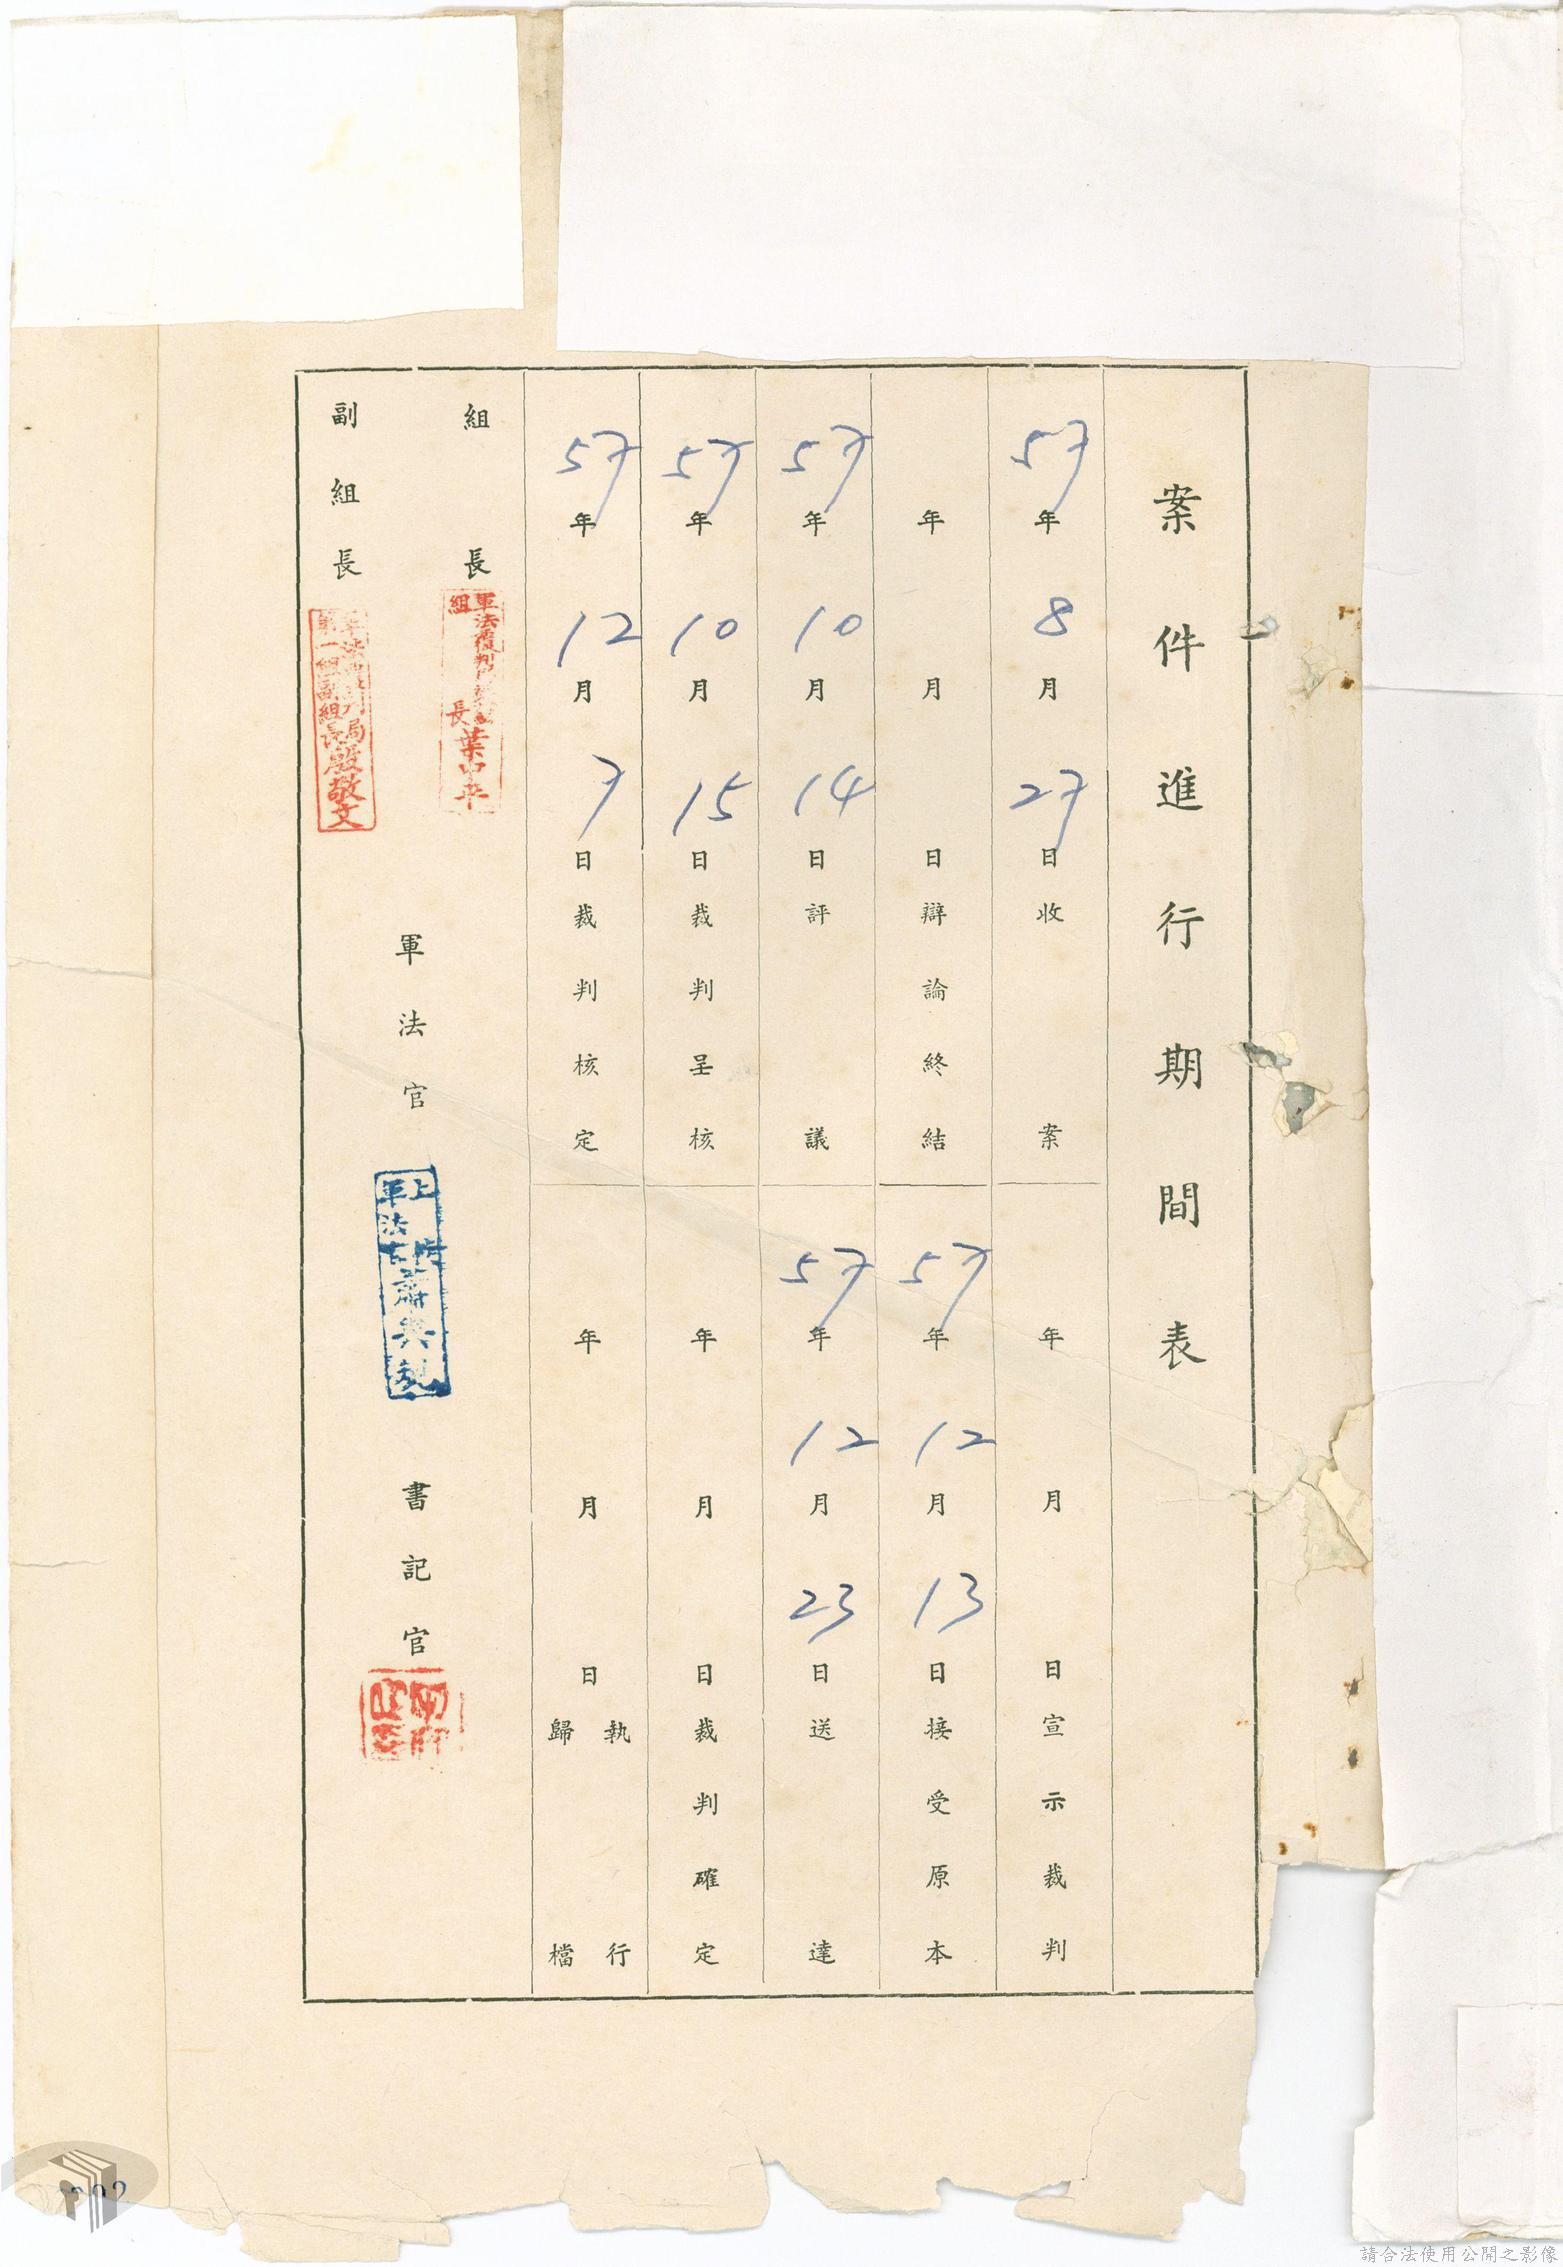 案件進行期間表
57年8月27日收案
年月日宣示裁判
年月日辯論終結
57年12月13日接受原本
57年10月14日評議
57年12月23日送達
57年10月15日裁判呈核
年月日裁判確定
57年12月7日裁判核定
年月日執行歸檔
組長
軍法覆判局
組長葉中平
副組長
軍法覆判局
第一組副組長殷敬文
軍法官
書記官
請合法使用公開之影像